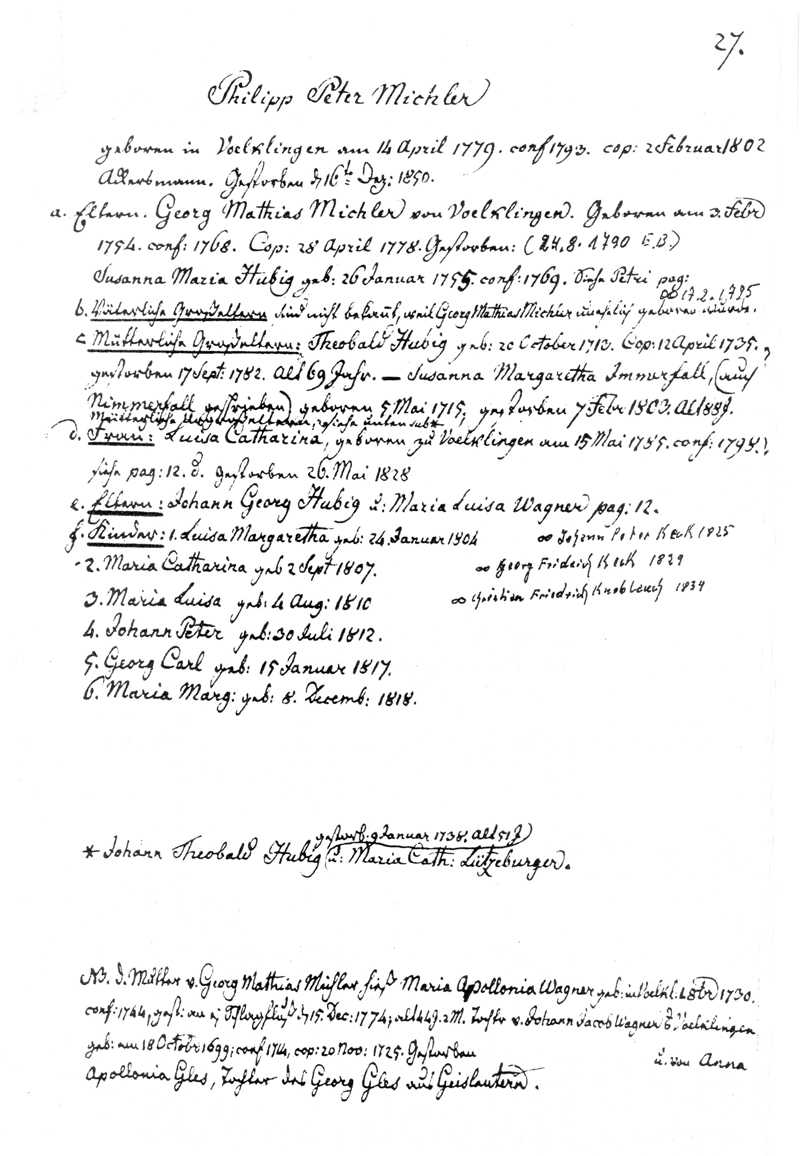 27.
Philipp Peter Michler
geboren in Voelklingen am 14 April 1779. conf 1793. cop: 2 Februar 1802
Ackersmann. Gestorben d 16t Dez: 1850.
a. Eltern. Georg Mathias Michler von Voelklingen. Geboren am 3. Febr
1754. conf: 1768. Cop: 28 April 1778. Gestorben: (24.8.1790 E.B.)
Susanna Maria Hubig geb: 26 Januar 1755. conf: 1769. Siehe Petri pag:
∞ 17.2.1795
b. Väterliche Großeltern sind nicht bekannt, weil Georg Mathias Michler unehelich geboren wurde.
c Mütterliche Großeltern: Theobald Hubig geb: 20 October 1713. Cop: 12 April 1735.
gestorben 17 Sept: 1782. Alt 69 Jahr. — Susanna Margaretha Immerfall, (auch
Nimmerfall geschrieben) geboren 5 Mai 1715, gestorben 7 Febr 1803. Alt 88 J.
Mütterliche Urgroßeltern, siehe unten sub *
d. Frau: Luisa Catharina, geboren zu Voelklingen am 15 Mai 1785. conf: 1798.
siehe pag: 12. d. gestorben 26. Mai 1828
e. Eltern: Johann Georg Hubig u: Maria Luisa Wagner pag: 12.
f. Kinder: 1. Luisa Margaretha geb: 24. Januar 1804 ∞ Johann Peter Keck 1825
2. Maria Catharina geb 2 Sept 1807. ∞ Georg Fridrich Keck 1829
3. Maria Luisa geb: 4 Aug: 1810 ∞ Christian Friedrich Knobloch 1834
4. Johann Peter geb: 30 Juli 1812.
5. Georg Carl geb: 15 Januar 1817.
6. Maria Marg: geb: 8. Decemb: 1818.
gestorb: 9 Januar 1738. Alt 51 J)
* Johann Theobald Hubig (u: Maria Cath: Lützeburger.
NB. d. Mutter v. Georg Mathias Michler hieß Maria Apollonia Wagner geb: in Voelkl. 1730.
conf: 1744, gest: an d 15. Dec: 1774; alt 44 J. 2 M. Tochter v. Johann Jacob Wagner Voelklingen
geb: am 18 Octobr 1699; conf 1714, cop: 20 Nov: 1725. Gestorben u. von Anna
Apollonia Gles, Tochter des Georg Gles aus Geislautern.